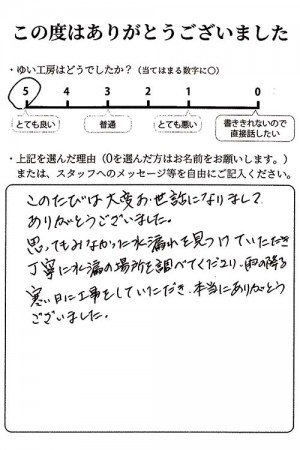 この度はありがとうございました
・ゆい工房はどうでしたか？（当てはまる数字に○）
5 4 3 2 1 0
とても良い 普通 とても悪い 書ききれないので直接話したい
・上記を選んだ理由（0を選んだ方はお名前をお願いします。）
または、スタッフへのメッセージ等を自由にご記入ください。
このたびは大変お世話になりまして
ありがとうございました。
思ってもみなかった水漏れを見つけていただき
丁寧に水漏の場所を調べてくださり、雨の降る
寒い日に工事をしていただき、本当にありがとう
ございました。